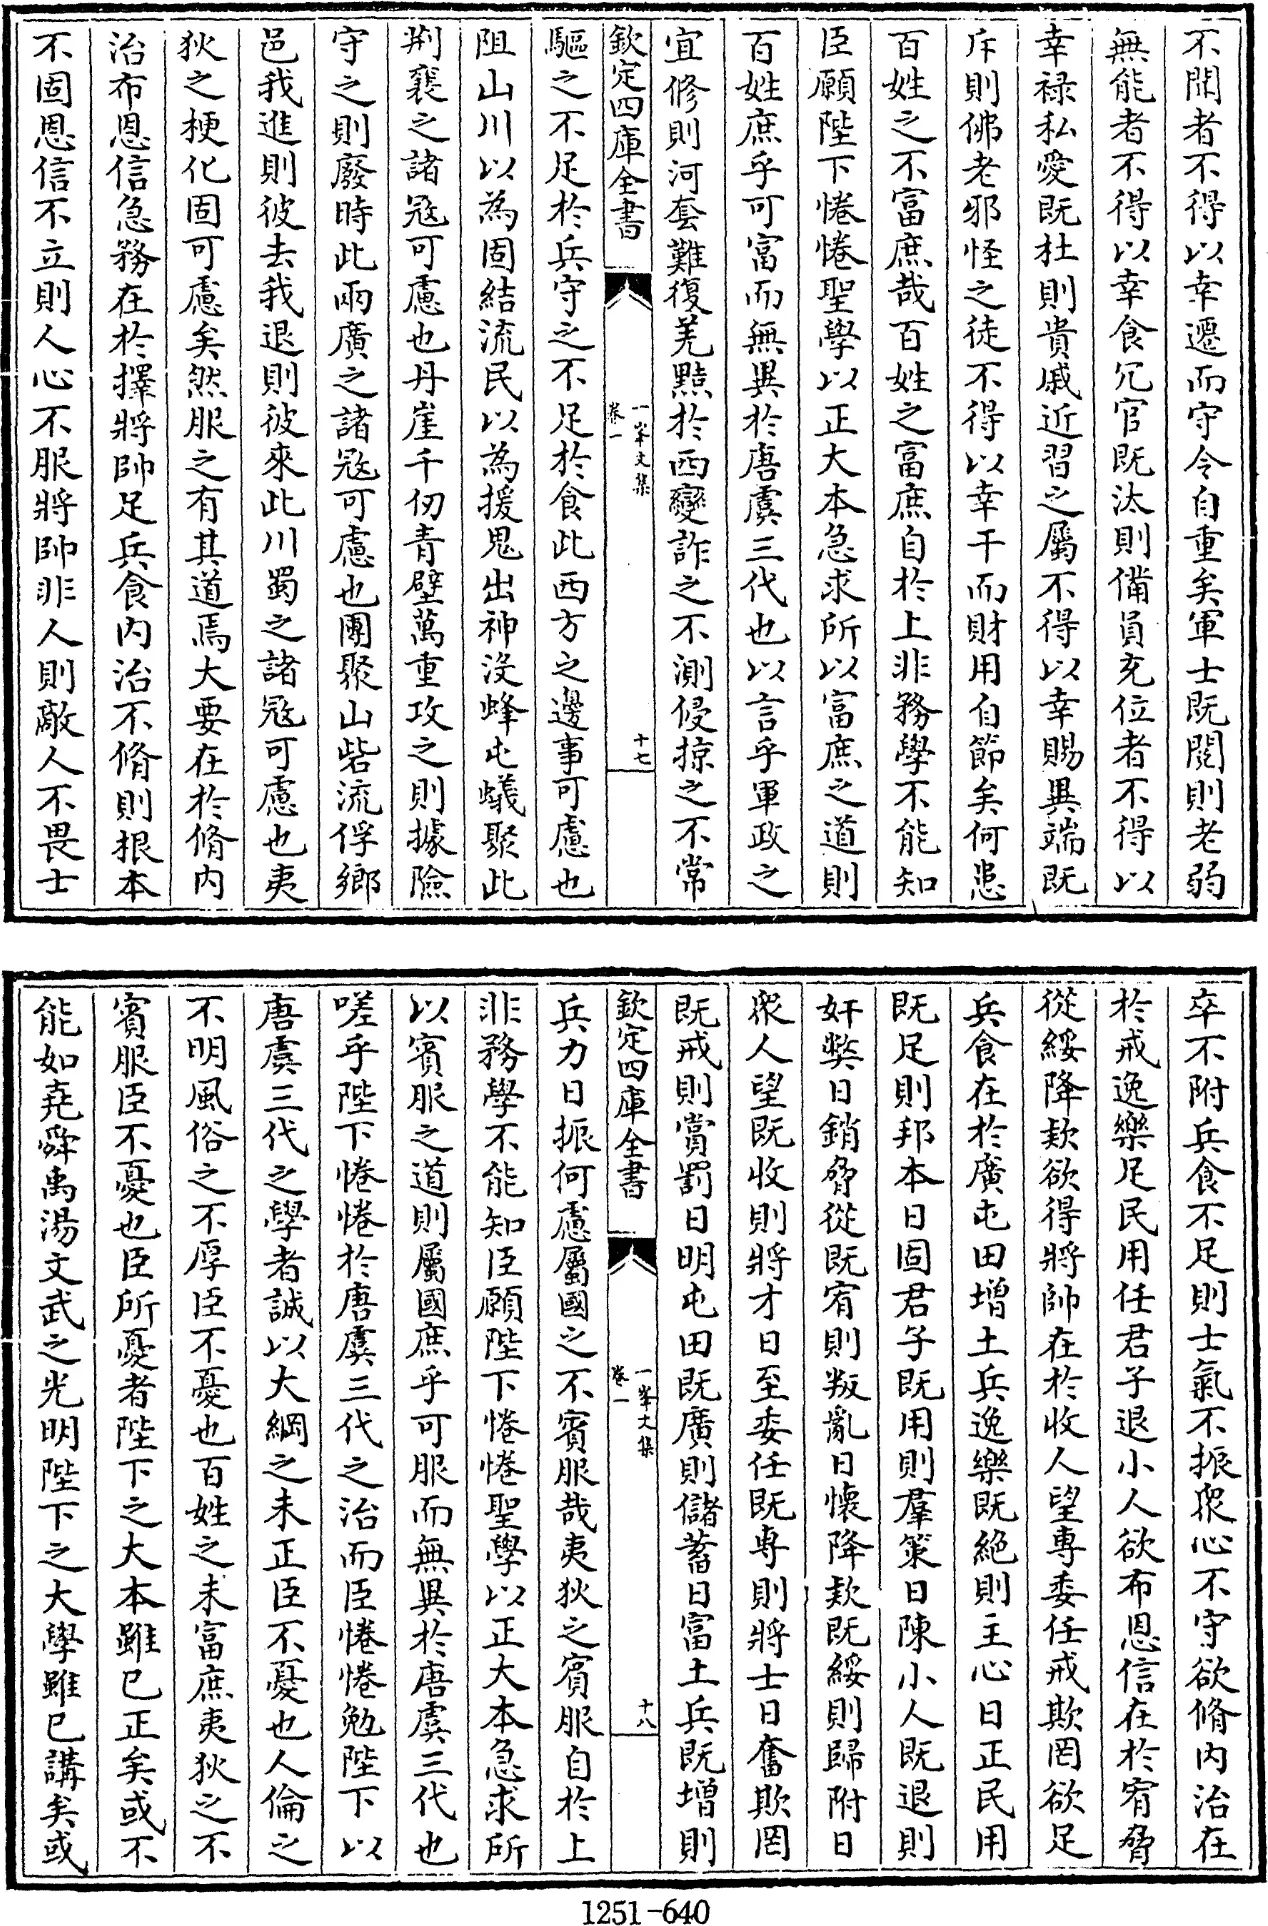 不閑者不得以幸遷而守令自重矣軍士既閲則老弱
無能者不得以幸食冗官既汰則備員充位者不得以
幸禄私愛既杜則貴戚近習之屬不得以幸賜異端既
斥則佛老邪怪之徒不得以幸干而財用自節矣何患
百姓之不富庶哉百姓之富庶自於上非務學不能知
臣願陛下惓惓聖學以正大本急求所以富庶之道則
百姓庶乎可富而無異於唐虞三代也以言乎軍政之
宜修則河套難復羌黠於西變詐之不測侵掠之不常
欽定四庫全書
一峯文集
卷一
十七
驅之不足於兵守之不足於食此西方之邊事可慮也
阻山川以為固結流民以為援鬼出神沒蜂屯蟻聚此
荆襄之諸寇可慮也丹崖千仞青壁萬重攻之則據險
守之則廢時此兩廣之諸寇可慮也團聚山砦流俘鄉
邑我進則彼去我退則彼來此川蜀之諸寇可慮也夷
狄之梗化固可慮矣然服之有其道焉大要在於脩内
治布恩信急務在於擇將帥足兵食内治不脩則根本
不固恩信不立則人心不服將帥非人則敵人不畏士
卒不附兵食不足則士氣不振衆心不守欲脩内治在
於戒逸樂足民用任君子退小人欲布恩信在於宥脅
從綏降欵欲得將帥在於收人望專委任戒欺罔欲足
兵食在於廣屯田增土兵逸樂既絶則主心日正民用
既足則邦本日固君子既用則羣策日陳小人既退則
奸弊日銷脅從既宥則叛亂日懷降欵既綏則歸附日
衆人望既收則將才日至委任既專則將士日奮欺罔
既戒則賞罰日明屯田既廣則儲蓄日富土兵既增則
欽定四庫全書
一峯文集
卷一
十八
兵力日振何慮屬國之不賓服哉夷狄之賓服自於上
非務學不能知臣願陛下惓惓聖學以正大本急求所
以賓服之道則屬國庶乎可服而無異於唐虞三代也
嗟乎陛下惓惓於唐虞三代之治而臣惓惓勉陛下以
唐虞三代之學者誠以大綱之未正臣不憂也人倫之
不明風俗之不厚臣不憂也百姓之未富庶夷狄之不
賓服臣不憂也臣所憂者陛下之大本雖已正矣或不
能如堯舜禹湯文武之光明陛下之大學雖已講矣或
1251-640